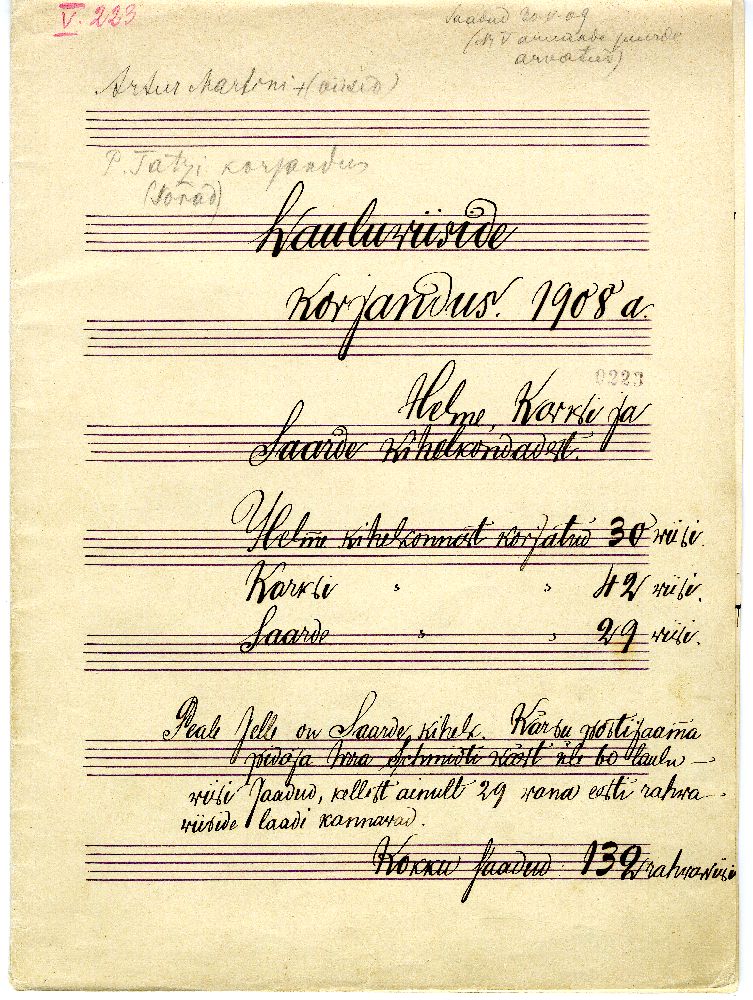 V. 223
Saadud 20.V.09
(N V annande juurde
arvatud)
Artur Martini + (viisid)
P. Tatzi korjandus
(Sõnad)
Lauluwiiside
Korjandus. 1908 a.
0223
Helme, Karksi ja
Saarde kihelkondadest.
Helme kihelkonnast korjatud 30 wiisi.
Karksi " " 42 wiisi.
Saarde " " 29 wiisi.
Peale selle on Saarde kihelk. Kärsu postijaama
pidaja herra Schmidti käest üle 60 laulu-
wiisi saadud, kellest ainult 29 wana eesti rahwa-
wiiside laadi kannawad.
Kokku saadud 132 rahwawiisi